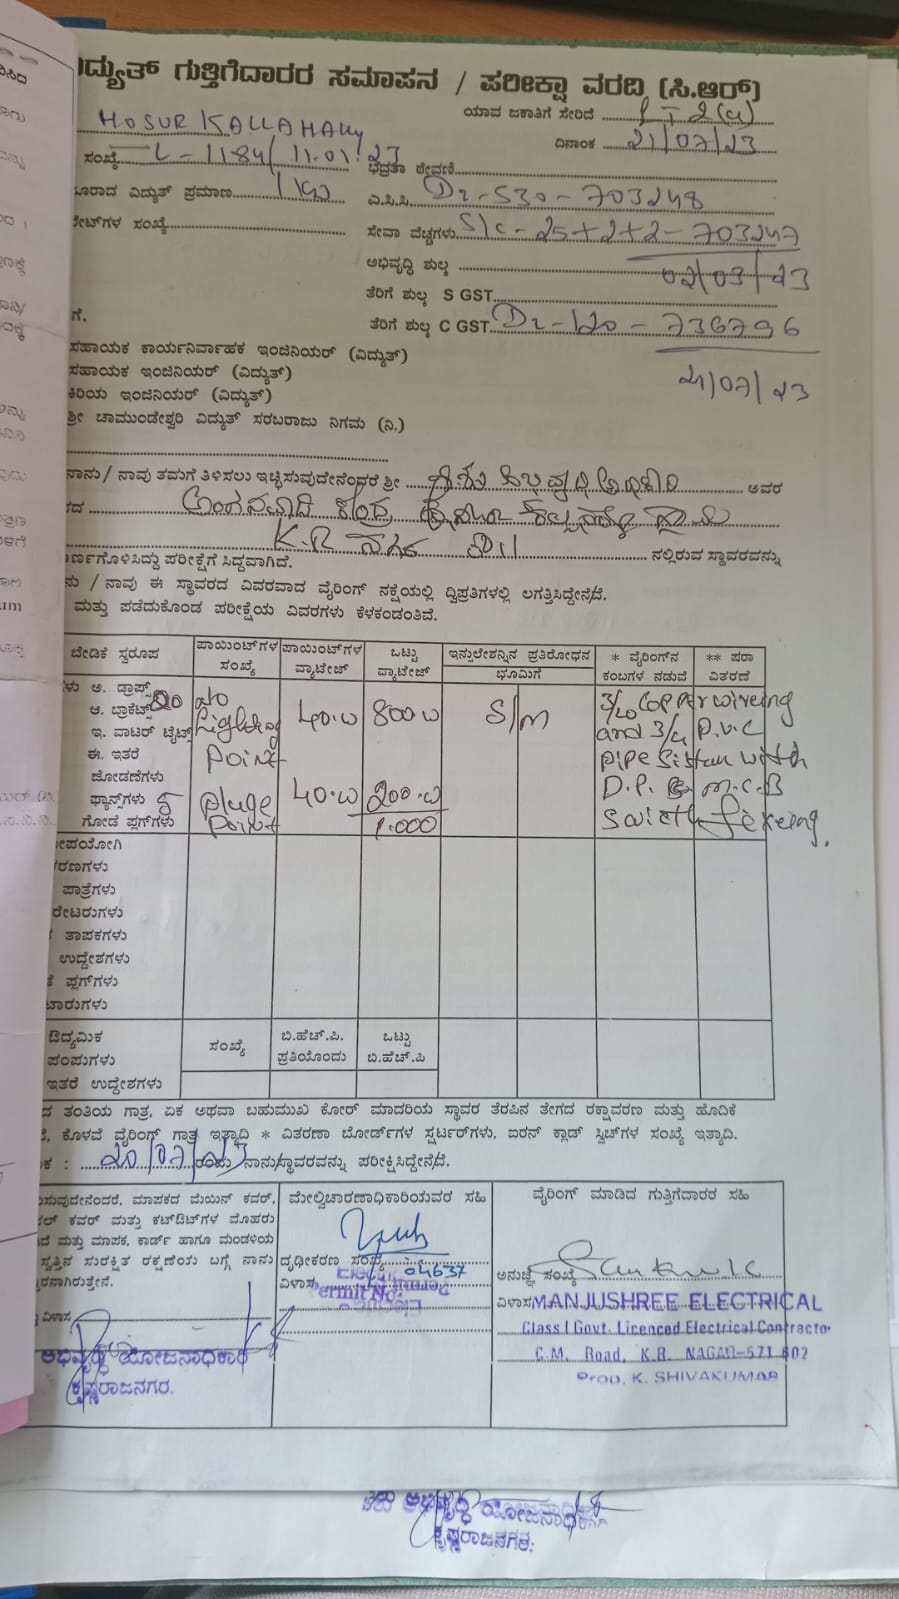 ದ್ಯುತ್ ಗುತ್ತಿಗೆದಾರರ ಸಮಾಪನ / ಪರೀಕ್ಷಾ ವರದಿ (ಸಿ.ಆರ್)
ಯಾವ ಜಕಾತಿಗೆ ಸೇರಿದೆ
HOSUR KALLAHALLY
ದಿನಾಂಕ 21/07/23
ಸಂಖ್ಯೆ L-1184/11.01.23 ಭದ್ರತಾ ಠೇವಣಿ
ವಿದ್ಯುತ್ ಪ್ರಮಾಣ 1KW ಎ.ಸಿ.ಸಿ. Dr-530-703248
ಸಂಖ್ಯೆ ಸೇವಾ ವೆಚ್ಚಗಳು S/C-25+2+2-703247
ಅಭಿವೃದ್ಧಿ ಶುಲ್ಕ 02/03/23
ತೆರಿಗೆ ಶುಲ್ಕ S GST
ಗೆ. ತೆರಿಗೆ ಶುಲ್ಕ C GST Dr-120-736796
21/07/23
ಸಹಾಯಕ ಕಾರ್ಯನಿರ್ವಾಹಕ ಇಂಜಿನಿಯರ್ (ವಿದ್ಯುತ್)
ಸಹಾಯಕ ಇಂಜಿನಿಯರ್ (ವಿದ್ಯುತ್)
ಕಿರಿಯ ಇಂಜಿನಿಯರ್ (ವಿದ್ಯುತ್)
ಶ್ರೀ ಚಾಮುಂಡೇಶ್ವರಿ ವಿದ್ಯುತ್ ಸರಬರಾಜು ನಿಗಮ (ನಿ.)
ನಾನು / ನಾವು ತಮಗೆ ತಿಳಿಸಲು ಇಚ್ಛಿಸುವುದೇನೆಂದರೆ ಶ್ರೀ ಅವರ
ಅಂಗನವಾಡಿ ಕೇಂದ್ರ
K.R ನಗರ ನಲ್ಲಿರುವ ಸ್ಥಾವರವನ್ನು
ರ್ಣಗೊಳಿಸಿದ್ದು ಪರೀಕ್ಷೆಗೆ ಸಿದ್ಧವಾಗಿದೆ.
ನು / ನಾವು ಈ ಸ್ಥಾವರದ ವಿವರವಾದ ವೈರಿಂಗ್ ನಕ್ಷೆಯಲ್ಲಿ ದ್ವಿಪ್ರತಿಗಳಲ್ಲಿ ಲಗತ್ತಿಸಿದ್ದೇನೆ/ದೆ.
ಮತ್ತು ಪಡೆದುಕೊಂಡ ಪರೀಕ್ಷೆಯ ವಿವರಗಳು ಕೆಳಕಂಡಂತಿವೆ.
ಬೇಡಿಕೆ ಸ್ವರೂಪ ಪಾಯಿಂಟ್‌ಗಳ ಸಂಖ್ಯೆ ಪಾಯಿಂಟ್‌ಗಳ ವ್ಯಾಟೇಜ್ ಒಟ್ಟು ವ್ಯಾಟೇಜ್ ಇನ್ಸುಲೇಶನ್ನಿನ ಪ್ರತಿರೋಧನ ಭೂಮಿಗೆ * ವೈರಿಂಗ್‌ನ ಕಂಬಗಳ ನಡುವೆ ** ಪರಾ ವಿತರಣೆ
ಗಳು ಅ. ಡ್ರಾಪ್ಸ್ 3/20 COPPER wireing
ಆ. ಬ್ರಾಕೆಟ್ಸ್ 20 Lighting 40.W 800.W S/m and 3/4 P.V.C
ಇ. ವಾಟರ್ ಟೈಟ್
ಈ. ಇತರೆ Point PiPe Sistam with
ಜೋಡಣೆಗಳು
ಫ್ಯಾನ್‌ಗಳು 5 Pluge 40.W 200.W D.P. & M.C.B
ಗೋಡೆ ಪ್ಲಗ್‌ಗಳು Point 1.000 Swicth fixeing.
ಪಯೋಗಿ
ಕರಣಗಳು
ಪಾತ್ರೆಗಳು
ರೇಟರುಗಳು
ತಾಪಕಗಳು
ಉದ್ದೇಶಗಳು
ಪ್ಲಗ್‌ಗಳು
ಟಾರುಗಳು
ಔದ್ಯಮಿಕ ಸಂಖ್ಯೆ ಬಿ.ಹೆಚ್.ಪಿ. ಪ್ರತಿಯೊಂದು ಒಟ್ಟು ಬಿ.ಹೆಚ್.ಪಿ
ಪಂಪುಗಳು
ಇತರೆ ಉದ್ದೇಶಗಳು
ದ ತಂತಿಯ ಗಾತ್ರ, ಏಕ ಅಥವಾ ಬಹುಮುಖ ಕೋರ್ ಮಾದರಿಯ ಸ್ಥಾವರ ತೆರಪಿನ ತೇಗದ ರಕ್ಷಾವರಣ ಮತ್ತು ಹೊದಿಕೆ
ಕೊಳವೆ ವೈರಿಂಗ್ ಗಾತ್ರ ಇತ್ಯಾದಿ * ವಿತರಣಾ ಬೋರ್ಡ್‌ಗಳ ಸ್ಟರ್ಟರ್‌ಗಳು, ಐರನ್ ಕ್ಲಾಡ್ ಸ್ವಿಚ್‌ಗಳ ಸಂಖ್ಯೆ ಇತ್ಯಾದಿ.
ಕ : 20/07/23 ರಂದು ನಾನು/ಸ್ಥಾವರವನ್ನು ಪರೀಕ್ಷಿಸಿದ್ದೇನೆ/ದೆ.
ಸುವುದೇನೆಂದರೆ, ಮಾಪಕದ ಮೆಯಿನ್ ಕವರ್,
ಲ್ ಕವರ್ ಮತ್ತು ಕಟ್‌ಔಟ್‌ಗಳ ಮೊಹರು
ಮತ್ತು ಮಾಪಕ, ಕಾರ್ಡ್ ಹಾಗೂ ಮಂಡಳಿಯ
ಸ್ವತ್ತಿನ ಸುರಕ್ಷಿತ ರಕ್ಷಣೆಯ ಬಗ್ಗೆ ನಾನು
ರನಾಗಿರುತ್ತೇನೆ.
ವಿಳಾಸ
ಅಭಿವೃದ್ಧಿ ಯೋಜನಾಧಿಕಾರಿ
ಕೃಷ್ಣರಾಜನಗರ.
ಮೇಲ್ವಿಚಾರಣಾಧಿಕಾರಿಯವರ ಸಹಿ
ದೃಢೀಕರಣ ಸಂಖ್ಯೆ 04637
ವಿಳಾಸ
Permit No:
ವೈರಿಂಗ್ ಮಾಡಿದ ಗುತ್ತಿಗೆದಾರರ ಸಹಿ
ಅನುಜ್ಞೆ ಸಂಖ್ಯೆ
ವಿಳಾಸ MANJUSHREE ELECTRICAL
Class I Govt. Licenced Electrical Contractor
C.M. Road, K.R. NAGAR-571 602
Prop. K. SHIVAKUMAR
ಅಭಿವೃದ್ಧಿ ಯೋಜನಾಧಿಕಾರಿ
ಕೃಷ್ಣರಾಜನಗರ.